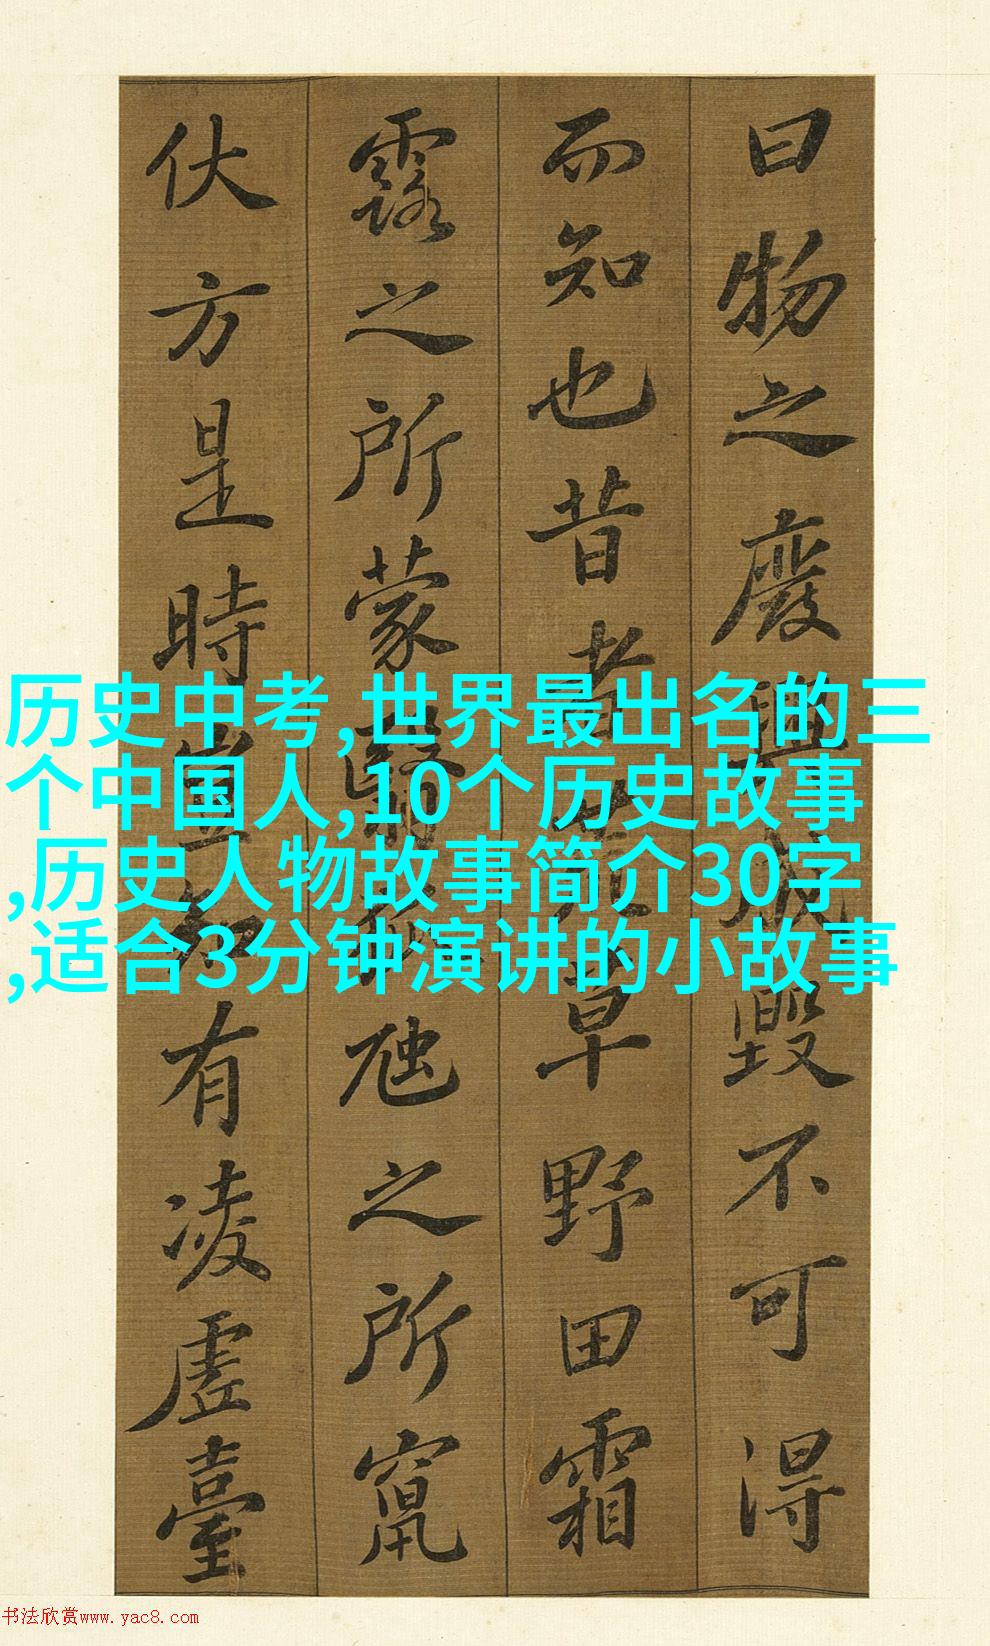 曰物之廢興成毀不可得
而知也昔者荒草野田霜
露之所蒙翳狐虺之所竄
伏方是時豈知有凌虛臺
历史中考,世界最出名的三
个中国人,10个历史故事
,历史人物故事简介30字
,适合3分钟演讲的小故事
书法欣赏www.yac8.com